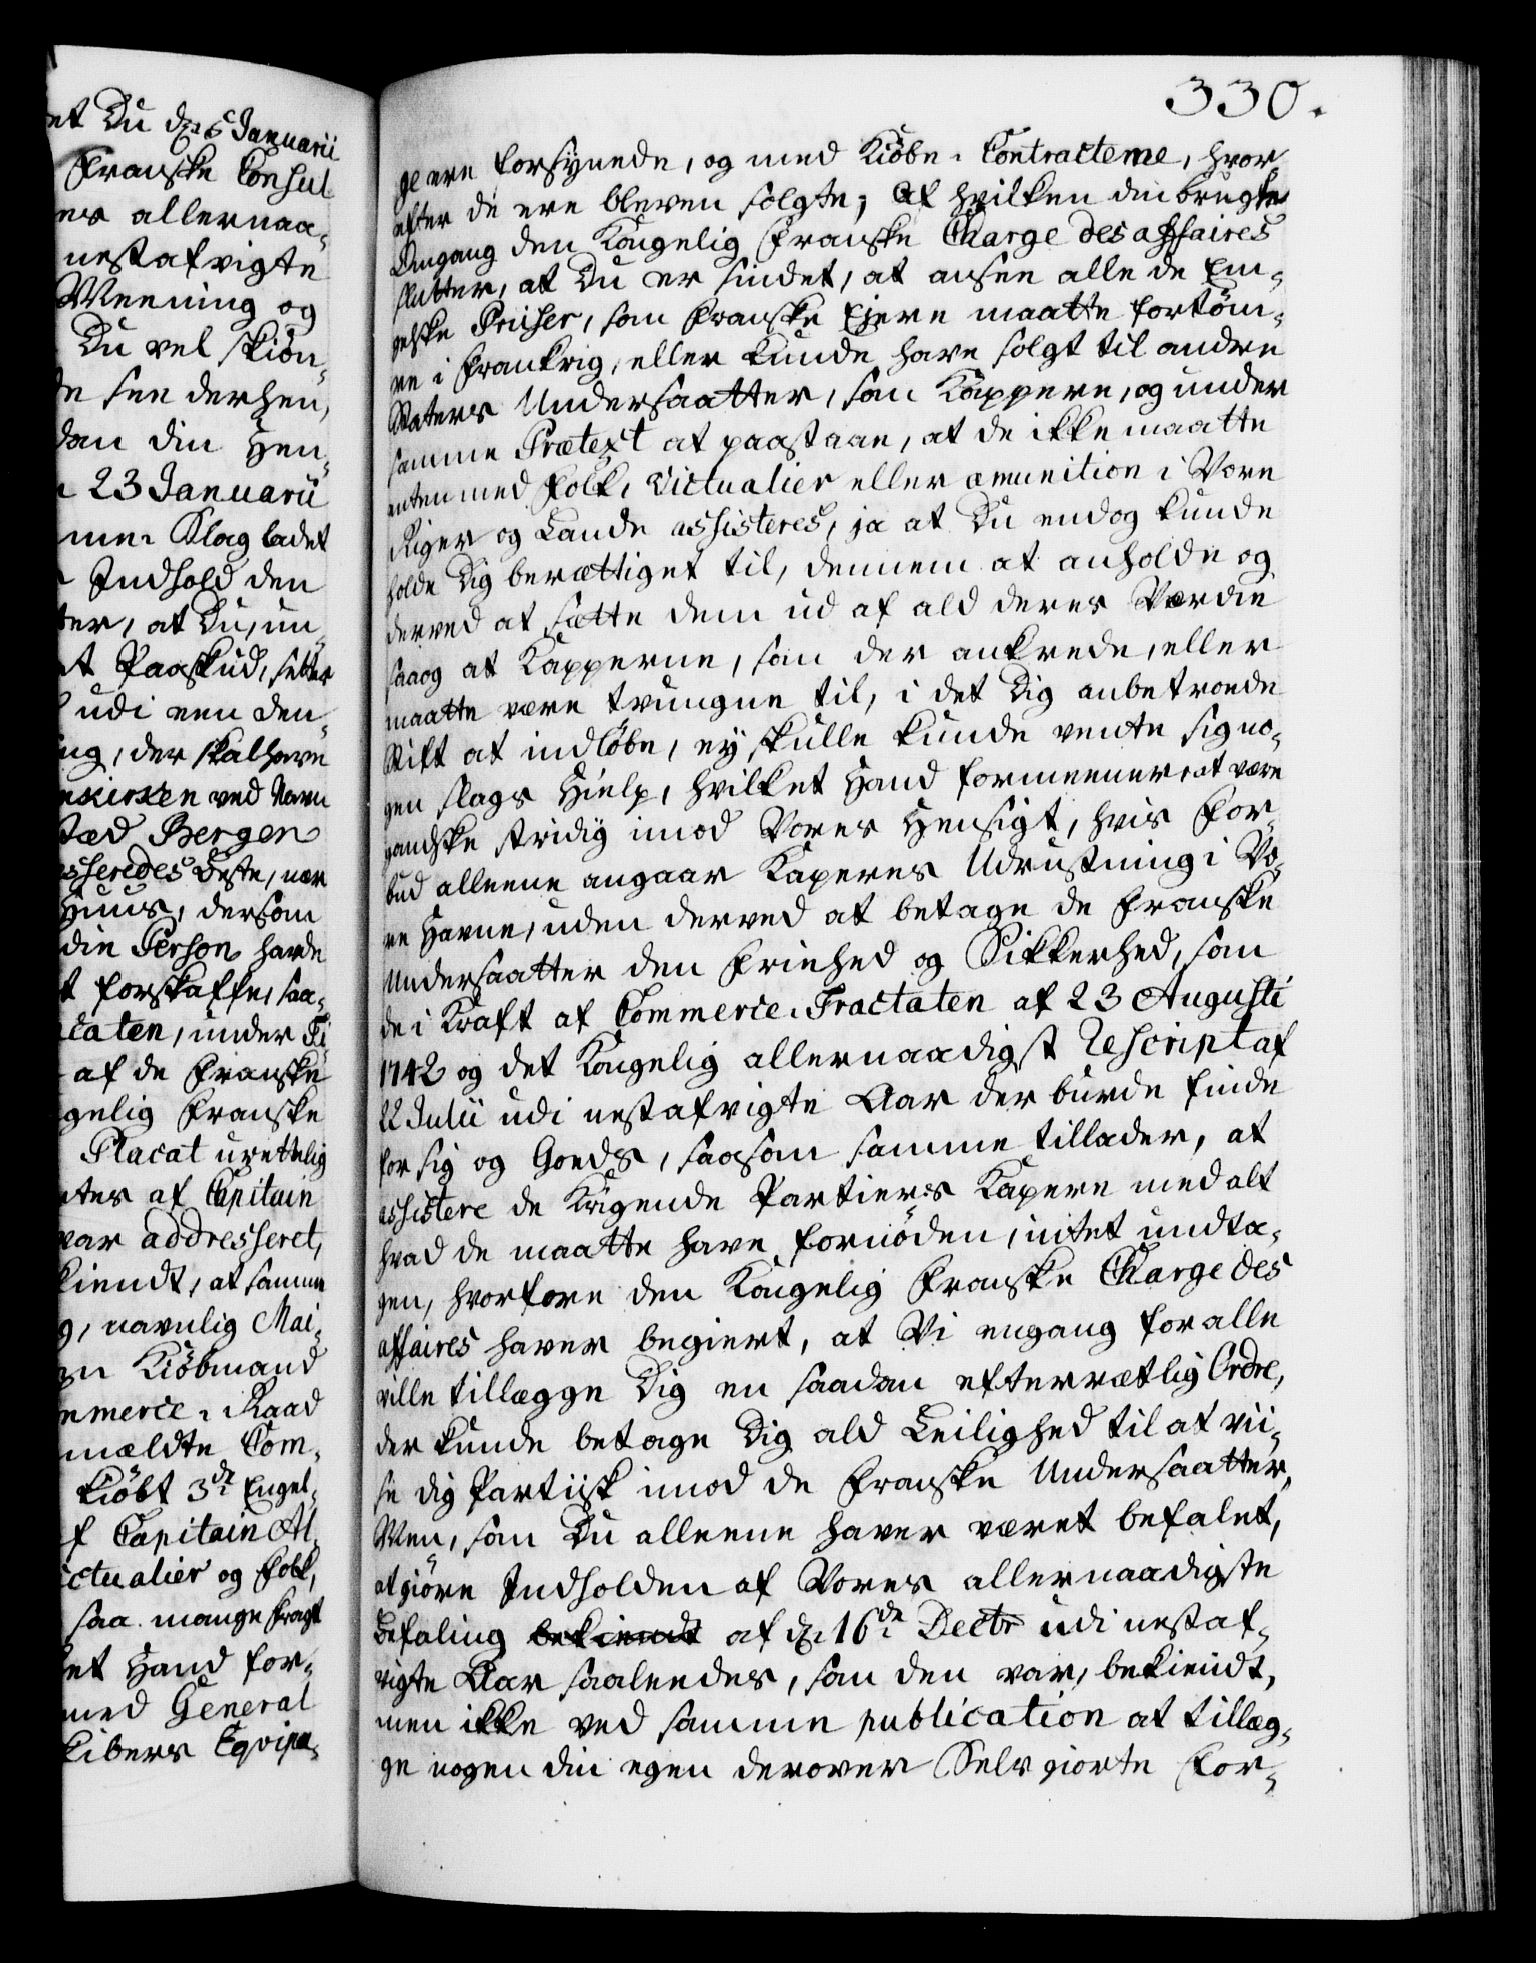 et Du dn 6 Januarii
Franske Consul
es allernaa¬
nestafvigte
Meening og
Du vel skiøn¬
de see derhen,
dan din Hen¬
n 23 Januarii
me¬ Klag ladet
Indhold den
ter, at Du, un¬
et Paaskud, setter
udi een den¬
ng, der skal have
nkirken ved Navn
stæd Bergen
esseredes beste, nær
Huus, dersom
din Person havde
t forskaffe, saa¬
ctaten, under Ti¬
af de Franske
gelig Franske
Placat urettelig
etes af Capitain
var addresseret,
kiendt, at samme
g, navnlig Mai¬
en Kiøbmand
mmerce¬ Raad
mældte Com¬
kiøbt 3de Engel¬
f Capitain Al¬
ictualier og Folk,
saa mange Fragt
et Hand for¬
med General
kibers Eqvipa¬
330.
ge ere forsynede, og med Kiöbe¬ Contracterne, hvor¬
efter de ere bleven solgte; Af hvilken din brugte
Omgang den Kongelig Franske Charge des affaires
slutter, at Du er sindet, at ansee alle de En¬
gelske Priser, som Franske Ejere maatte fortöm¬
re i Frankrig, eller kunde have solgt til andre
Staters Undersaatter, som Kappere, og under
samme Prætext at paastaae, at de ikke maatte
enten med Folk, Victualier eller amunition i Vore
Riger og Lande assisteres, ja at Du endog kunde
holde Dig berættiget til, dennem at anholde og
derved at sætte dem ud af ald deres Værdie
saaog at Kapperne, som der ankrede, eller
maatte være tvungne til, i det Dig anbetroede
Stift at indlöbe, ey skulle kunde vente sig no¬
gen slags Hielp, hvilket Hand formeener at være
gandske stridig imod Vores Hensigt, hvis For¬
bud alleene angaar Kaperes Udrustning i Vo¬
re Havne, uden derved at betage de Franske
Undersaatter den Friehed og Sikkerhed, som
de i Kraft af Commerce¬ Tractaten af 23 Augusti
1742 og det Kongelig allernaadigst Rescript af
22 Julii udi nestafvigte Aar der burde finde
for sig og Goeds, saasom samme tillader, at
assistere de Krigende Partiers Kapere med alt
hvad de maatte have fornöden, intet undta¬
gen, hvorfore den Kongelig Franske Charge des
affaires haver begiert, at Vi engang for alle
ville tillægge Dig en saadan efterrætlig Ordre,
der kunde betage Dig ald Leilighed til at vii¬
se dig Partiisk imod de Franske Undersaatter,
Men, som Du alleene haver været befalet,
at giöre Indholden af Vores allernaadigste
Befaling bekiendt af dn 16de Decbr udi nestaf¬
vigte Aar saaleedes, som den var, bekiendt,
men ikke ved samme publication at tillæg¬
ge nogen din egen derover Selv giorte For¬